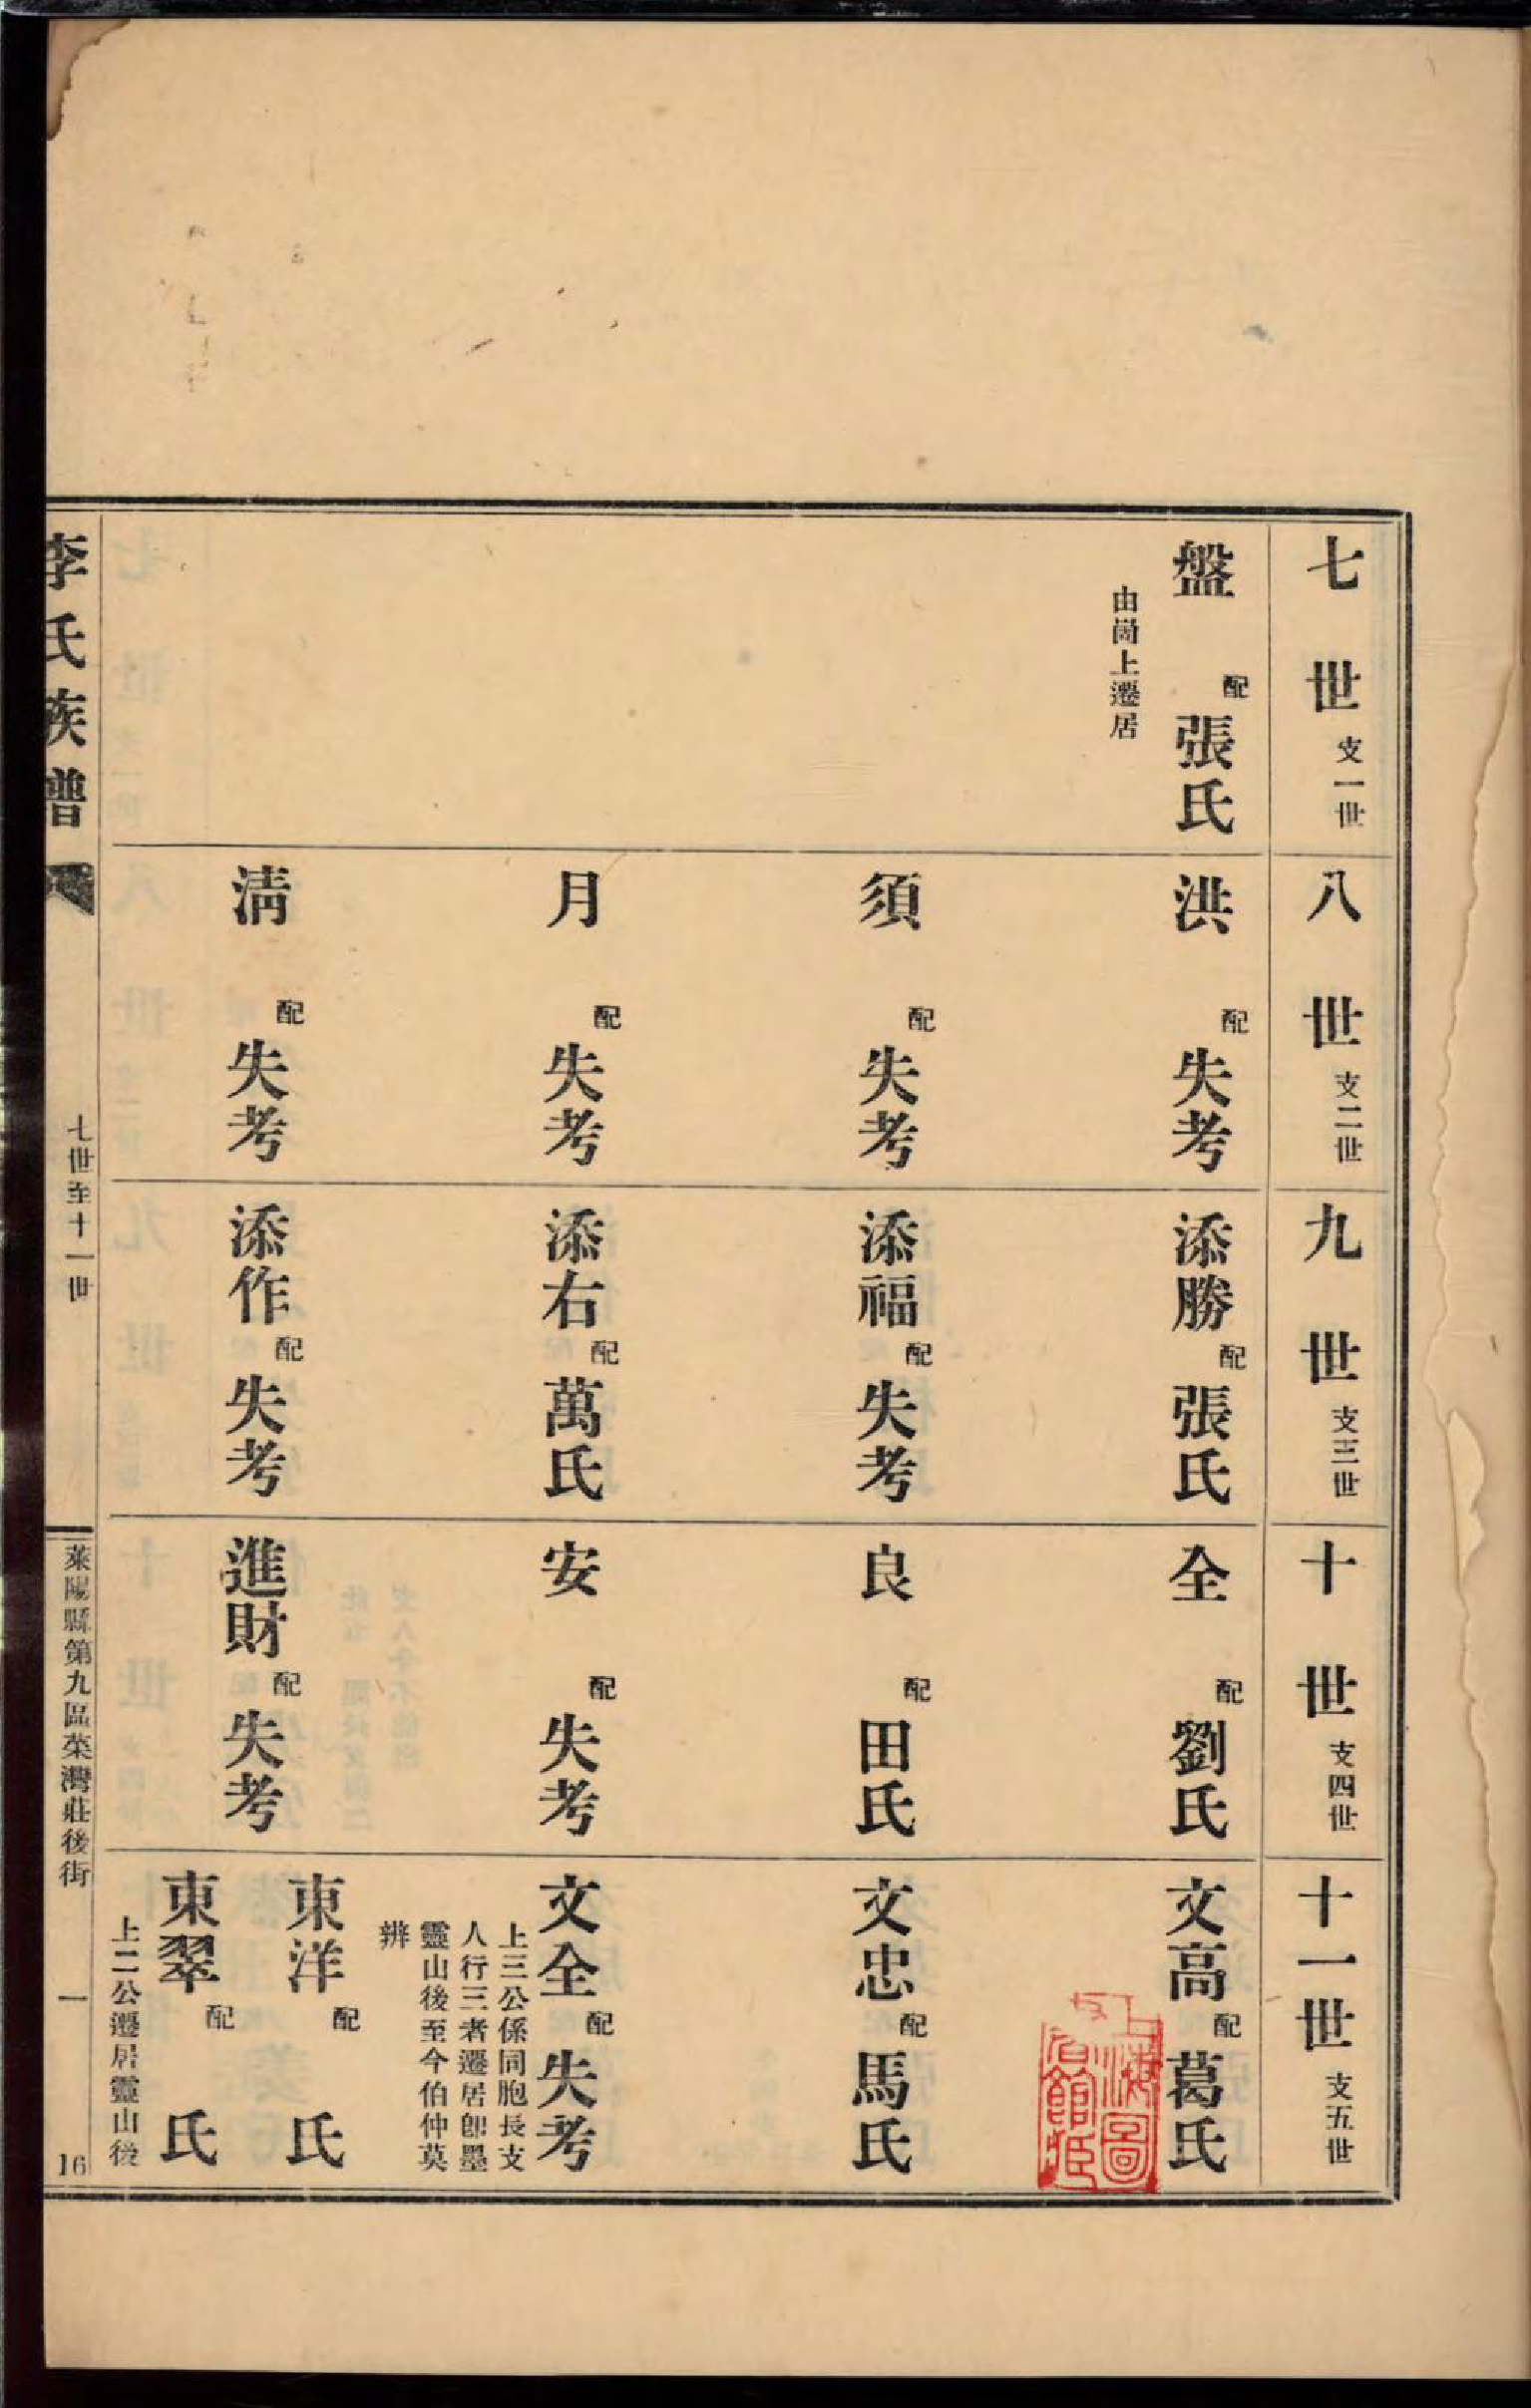 七世 支一世
盤 配張氏
由崗上遷居
八世 支二世
洪 配失考
須 配失考
月 配失考
淸 配失考
九世 支三世
添勝 配張氏
添福 配失考
添右 配萬氏
添作 配失考
十世 支四世
全 配劉氏
良 配田氏
安 配失考
進財 配失考
十一世 支五世
文高 配葛氏
文忠 配馬氏
文全 配失考
上三公係同胞長支
人行三者遷居卽墨
靈山後至今伯仲莫
辨
東洋 配 氏
東翠 配 氏
上二公遷居靈山後
上海圖
館
李氏族譜
七世至十一世
萊陽縣第九區菜灣莊後街
一
16